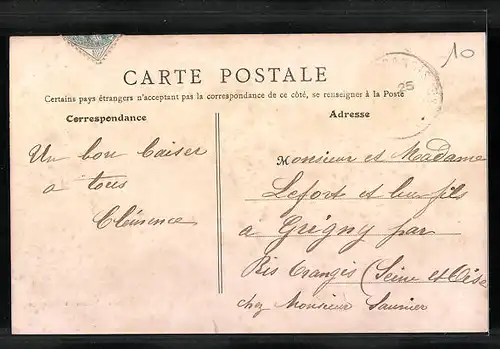 10
25
CARTE POSTALE
Certains pays étrangers n'acceptant pas la correspondance de ce côté, se renseigner à la Poste
Correspondance
Un bon baiser
a tous
Clémence
Adresse
Monsieur et Madame
Lefort et leur fils
a Grigny par
Ris Orangis (Seine et Oise
chez Monsieur Saunier